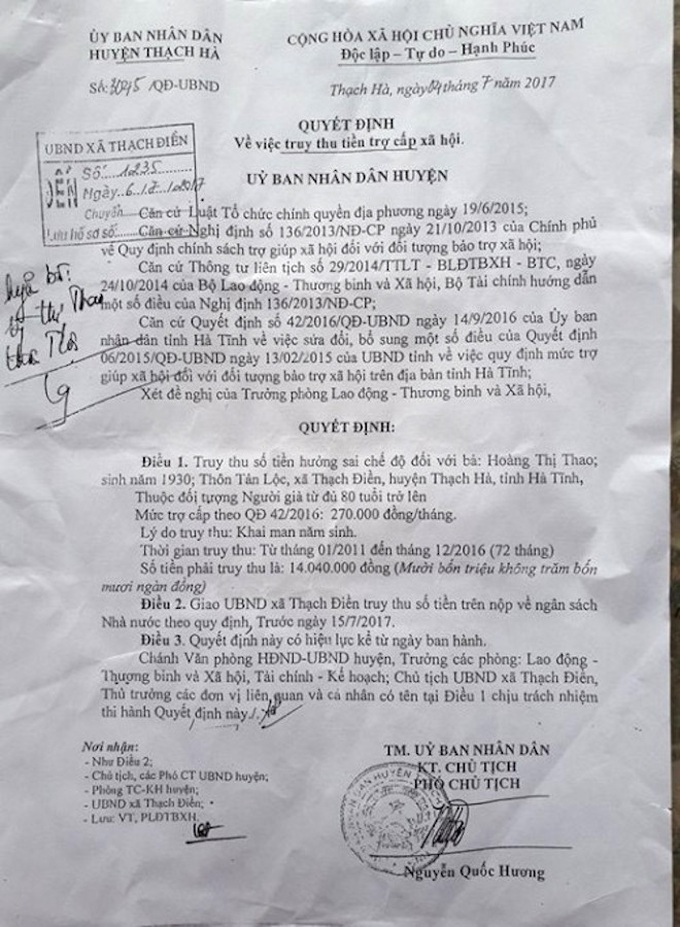 ỦY BAN NHÂN DÂN
HUYỆN THẠCH HÀ
Số: 3045 /QĐ-UBND
CỘNG HÒA XÃ HỘI CHỦ NGHĨA VIỆT NAM
Độc lập – Tự do – Hạnh Phúc
Thạch Hà, ngày 04 tháng 7 năm 2017
QUYẾT ĐỊNH
Về việc truy thu tiền trợ cấp xã hội.
UBND XÃ THẠCH ĐIỀN
ĐẾN
Số: 1235
Ngày..6./.7./.2017
Chuyển
Lưu hồ sơ số:
UỶ BAN NHÂN DÂN HUYỆN
Căn cứ Luật Tổ chức chính quyền địa phương ngày 19/6/2015;
Căn cứ Nghị định số 136/2013/NĐ-CP ngày 21/10/2013 của Chính phủ
về Quy định chính sách trợ giúp xã hội đối với đối tượng bảo trợ xã hội;
Căn cứ Thông tư liên tịch số 29/2014/TTLT - BLĐTBXH - BTC, ngày
24/10/2014 của Bộ Lao động - Thương binh và Xã hội, Bộ Tài chính hướng dẫn
một số điều của Nghị định 136/2013/NĐ-CP;
Căn cứ Quyết định số 42/2016/QĐ-UBND ngày 14/9/2016 của Ủy ban
nhân dân tỉnh Hà Tĩnh về việc sửa đổi, bổ sung một số điều của Quyết định
06/2015/QĐ-UBND ngày 13/02/2015 của UBND tỉnh về việc quy định mức trợ
giúp xã hội đối với đối tượng bảo trợ xã hội trên địa bàn tỉnh Hà Tĩnh;
Xét đề nghị của Trưởng phòng Lao động - Thương binh và Xã hội,
QUYẾT ĐỊNH:
Điều 1. Truy thu số tiền hưởng sai chế độ đối với bà: Hoàng Thị Thao;
sinh năm 1930; Thôn Tân Lộc, xã Thạch Điền, huyện Thạch Hà, tỉnh Hà Tĩnh,
Thuộc đối tượng Người già từ đủ 80 tuổi trở lên
Mức trợ cấp theo QĐ 42/2016: 270.000 đồng/tháng.
Lý do truy thu: Khai man năm sinh.
Thời gian truy thu: Từ tháng 01/2011 đến tháng 12/2016 (72 tháng)
Số tiền phải truy thu là: 14.040.000 đồng (Mười bốn triệu không trăm bốn
mươi ngàn đồng)
Điều 2. Giao UBND xã Thạch Điền truy thu số tiền trên nộp về ngân sách
Nhà nước theo quy định, Trước ngày 15/7/2017.
Điều 3. Quyết định này có hiệu lực kể từ ngày ban hành.
Chánh Văn phòng HĐND-UBND huyện, Trưởng các phòng: Lao động -
Thương binh và Xã hội, Tài chính - Kế hoạch; Chủ tịch UBND xã Thạch Điền,
Thủ trưởng các đơn vị liên quan và cá nhân có tên tại Điều 1 chịu trách nhiệm
thi hành Quyết định này./.
Nơi nhận:
- Như Điều 2;
- Chủ tịch, các Phó CT UBND huyện;
- Phòng TC-KH huyện;
- UBND xã Thạch Điền;
- Lưu: VT, PLĐTBXH.
TM. UỶ BAN NHÂN DÂN
KT. CHỦ TỊCH
PHÓ CHỦ TỊCH
Nguyễn Quốc Hương